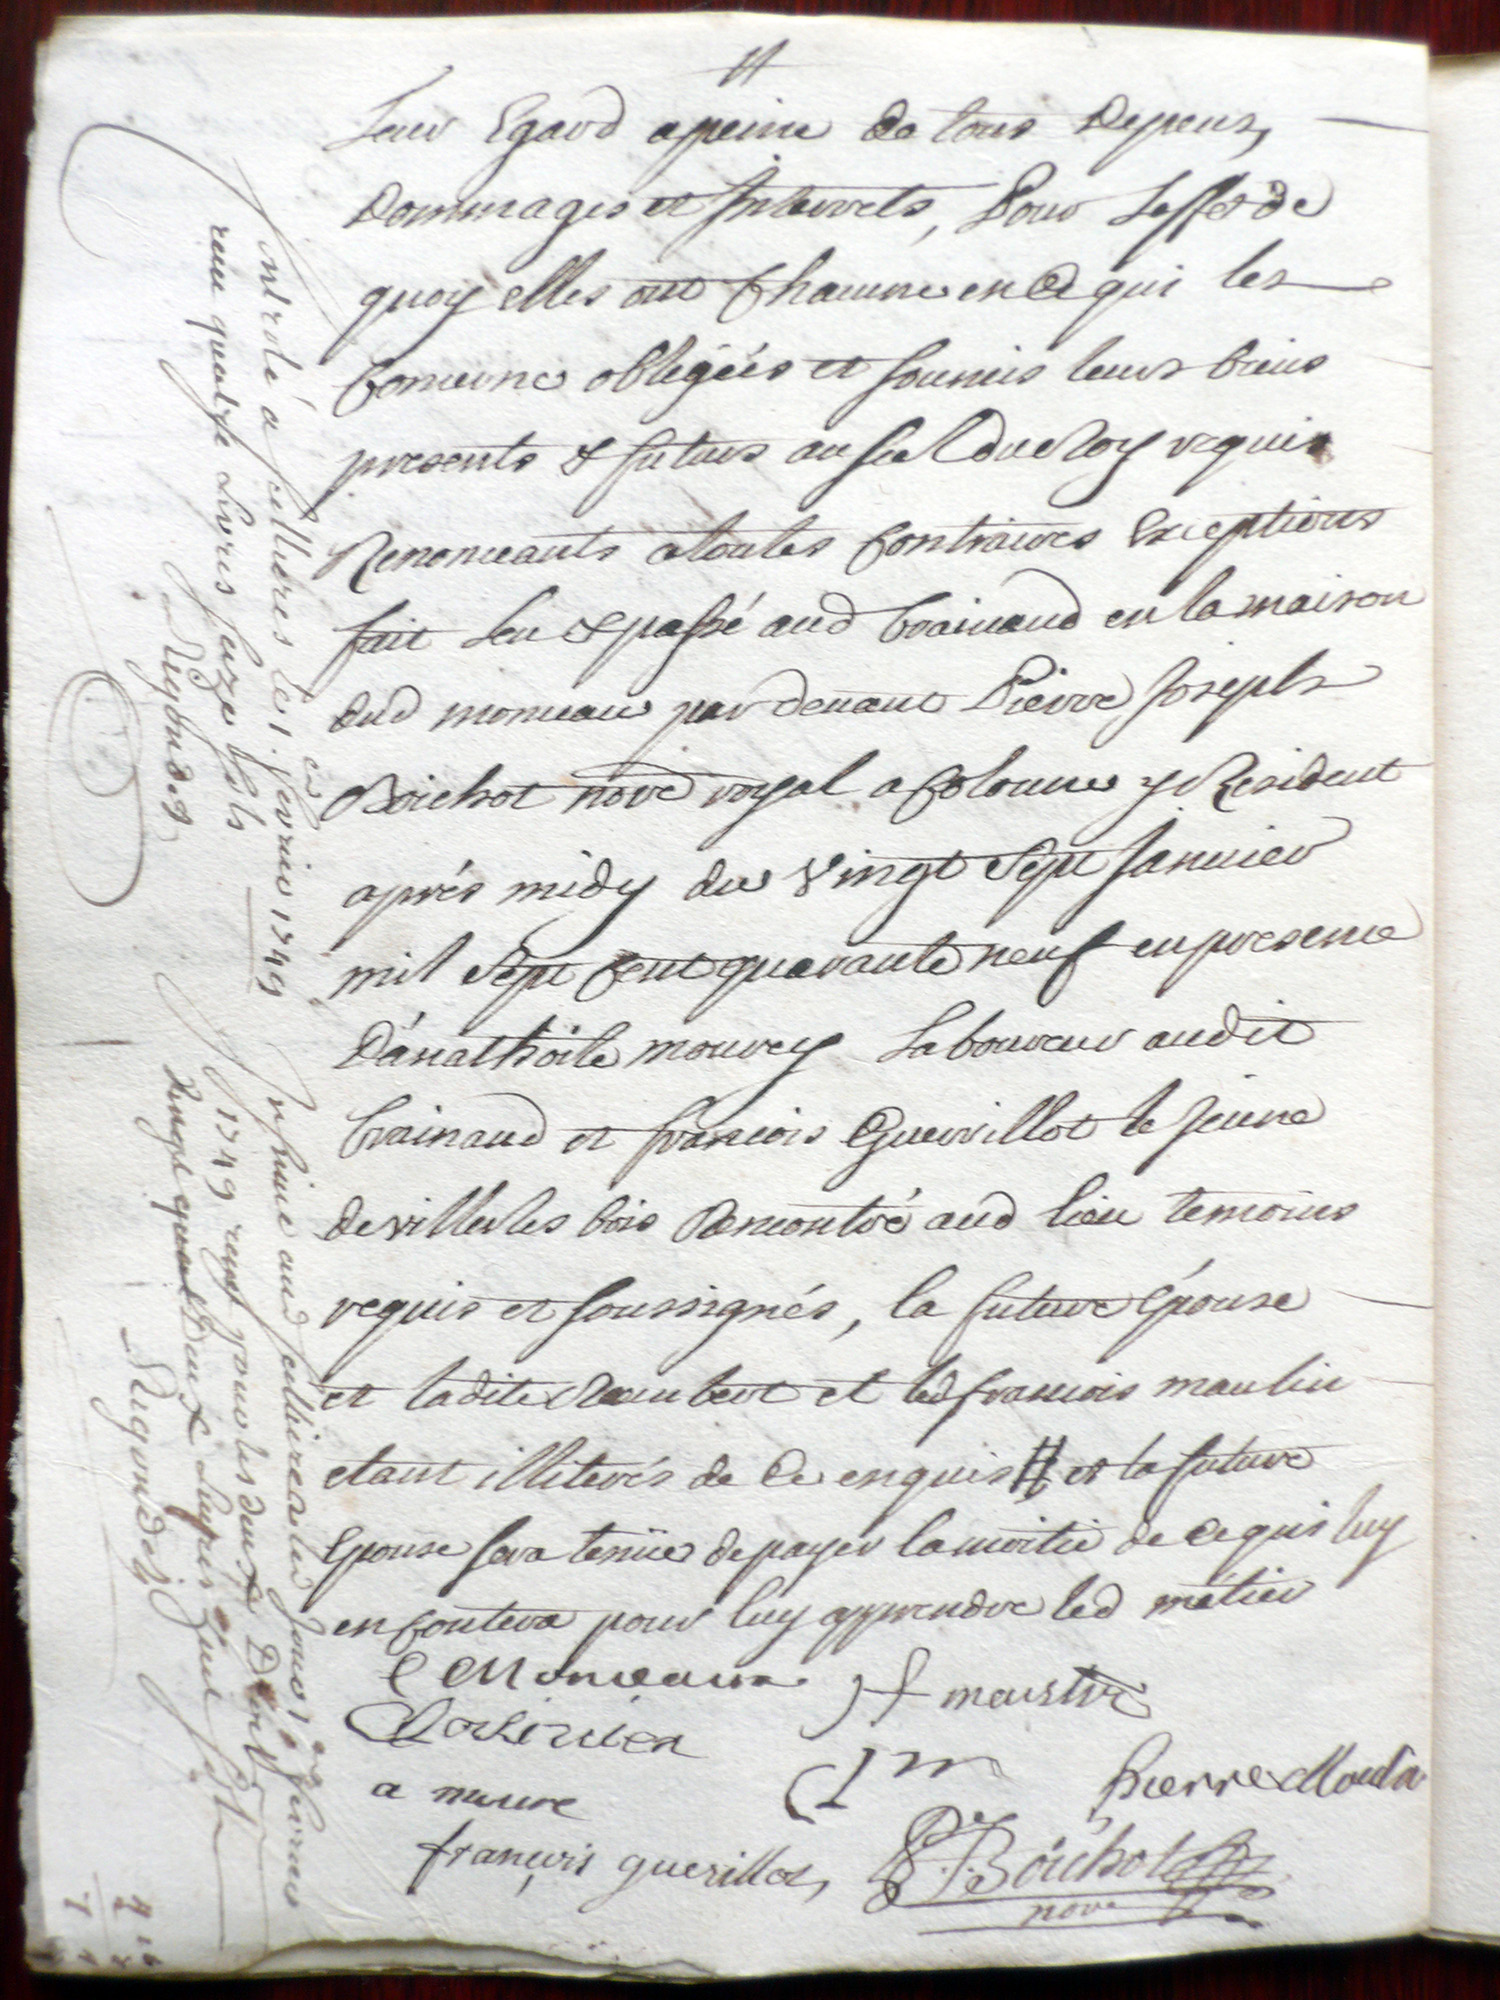 leur Egard a peine de tous Depens,
Dommages et Interrets, Pour Leffet de
quoy elles ont Chacune en ce qui les
Concerne obligées et soumis leurs biens
presents & futurs au scel du Roy requis
Renonceants a toutes Contraires Exceptions
fait Leu & passé aud Brainand en la maison
dud monceau par devant Pierre Joseph
Boichot nore royal a Colonne y Resident
aprés midy du Vingt Sept Janvier
mil Sept Cent quarante neuf en presence
D'anathoile mourey Laboureur audit
Brainand et francois Guerrillot le Jeune
de villerles bois Rencontré aud lieu temoins
requis et soussignés, la future Epouse
et ladite Reaubert et led francois maulin
etant illiterés de Ce enquis # et la future
Epouse sera tenüe de payer la moitié de Ce qui luy
en Coutera pour luy apprendre led métier
C Monceaux
J f meustre
a mure
J m
pierre Moula
françois guerillot,
P. J. Boichot
nore
Controlé á sellieres le 1.er fevrier 1749
receu quatre Livres seize sols
Ligondez
Insinué aud sellieres led Jour 1er fevrier
1749 receu pour les deux D
Vingt quat Deux Livres
Ligondez